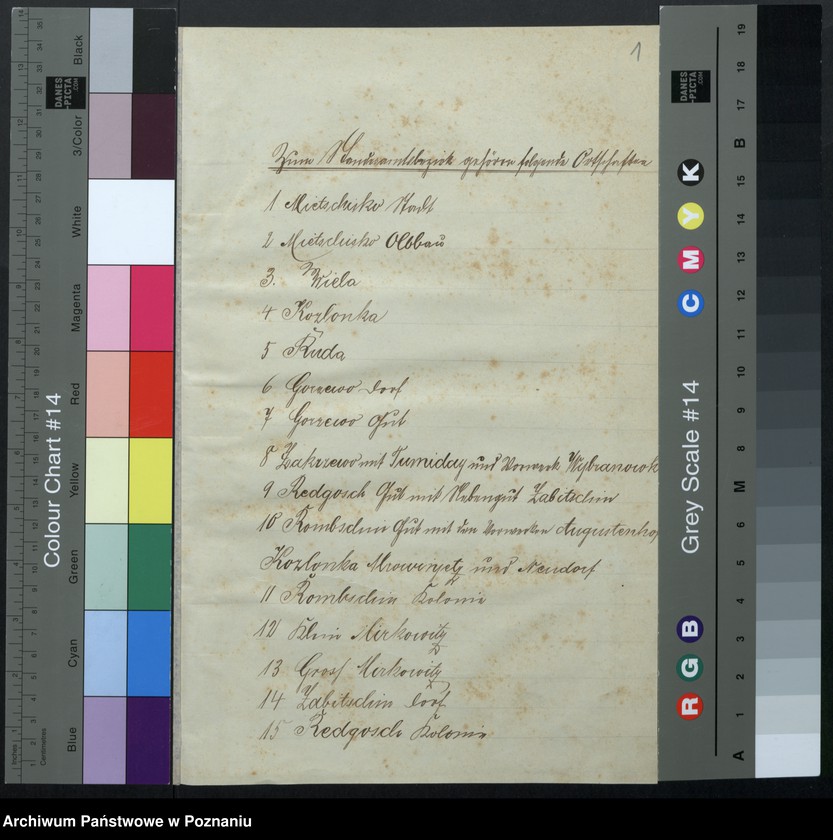 1
Zum Standesamtsbezirk gehören folgende Ortschaften
1 Mietschisko Stadt
2 Mietschisko Abbau
3. Wiela
4 Kozlonka
5 Ruda
6 Gorzewo Dorf
7 Gorzewo Gut
8 Zakrzewo mit Tumiday und Vorwerk Wybranowk
9 Redgosch Gut mit Nebengut Zabitschin
10 Rombschin Gut mit den Vorwerken Augustenhof
Kozlonka Mrowinietz und Neudorf
11 Rombschin Kolonie
12 Klein Mirkowitz
13 Gross Mirkowitz
14 Zabitschin Dorf
15 Redgosch Kolonie
Colour Chart #14
Blue
Cyan
Green
Yellow
Red
Magenta
White
3/Color
Black
DANES
-PICTA
.COM
Inches
Centimetres
Grey Scale #14
DANES
-PICTA
.COM
R G B
C M Y K
A 1 2 3 4 5 6 M 8 9 10 11 12 13 14 15 B 17 18 19
Archiwum Państwowe w Poznaniu